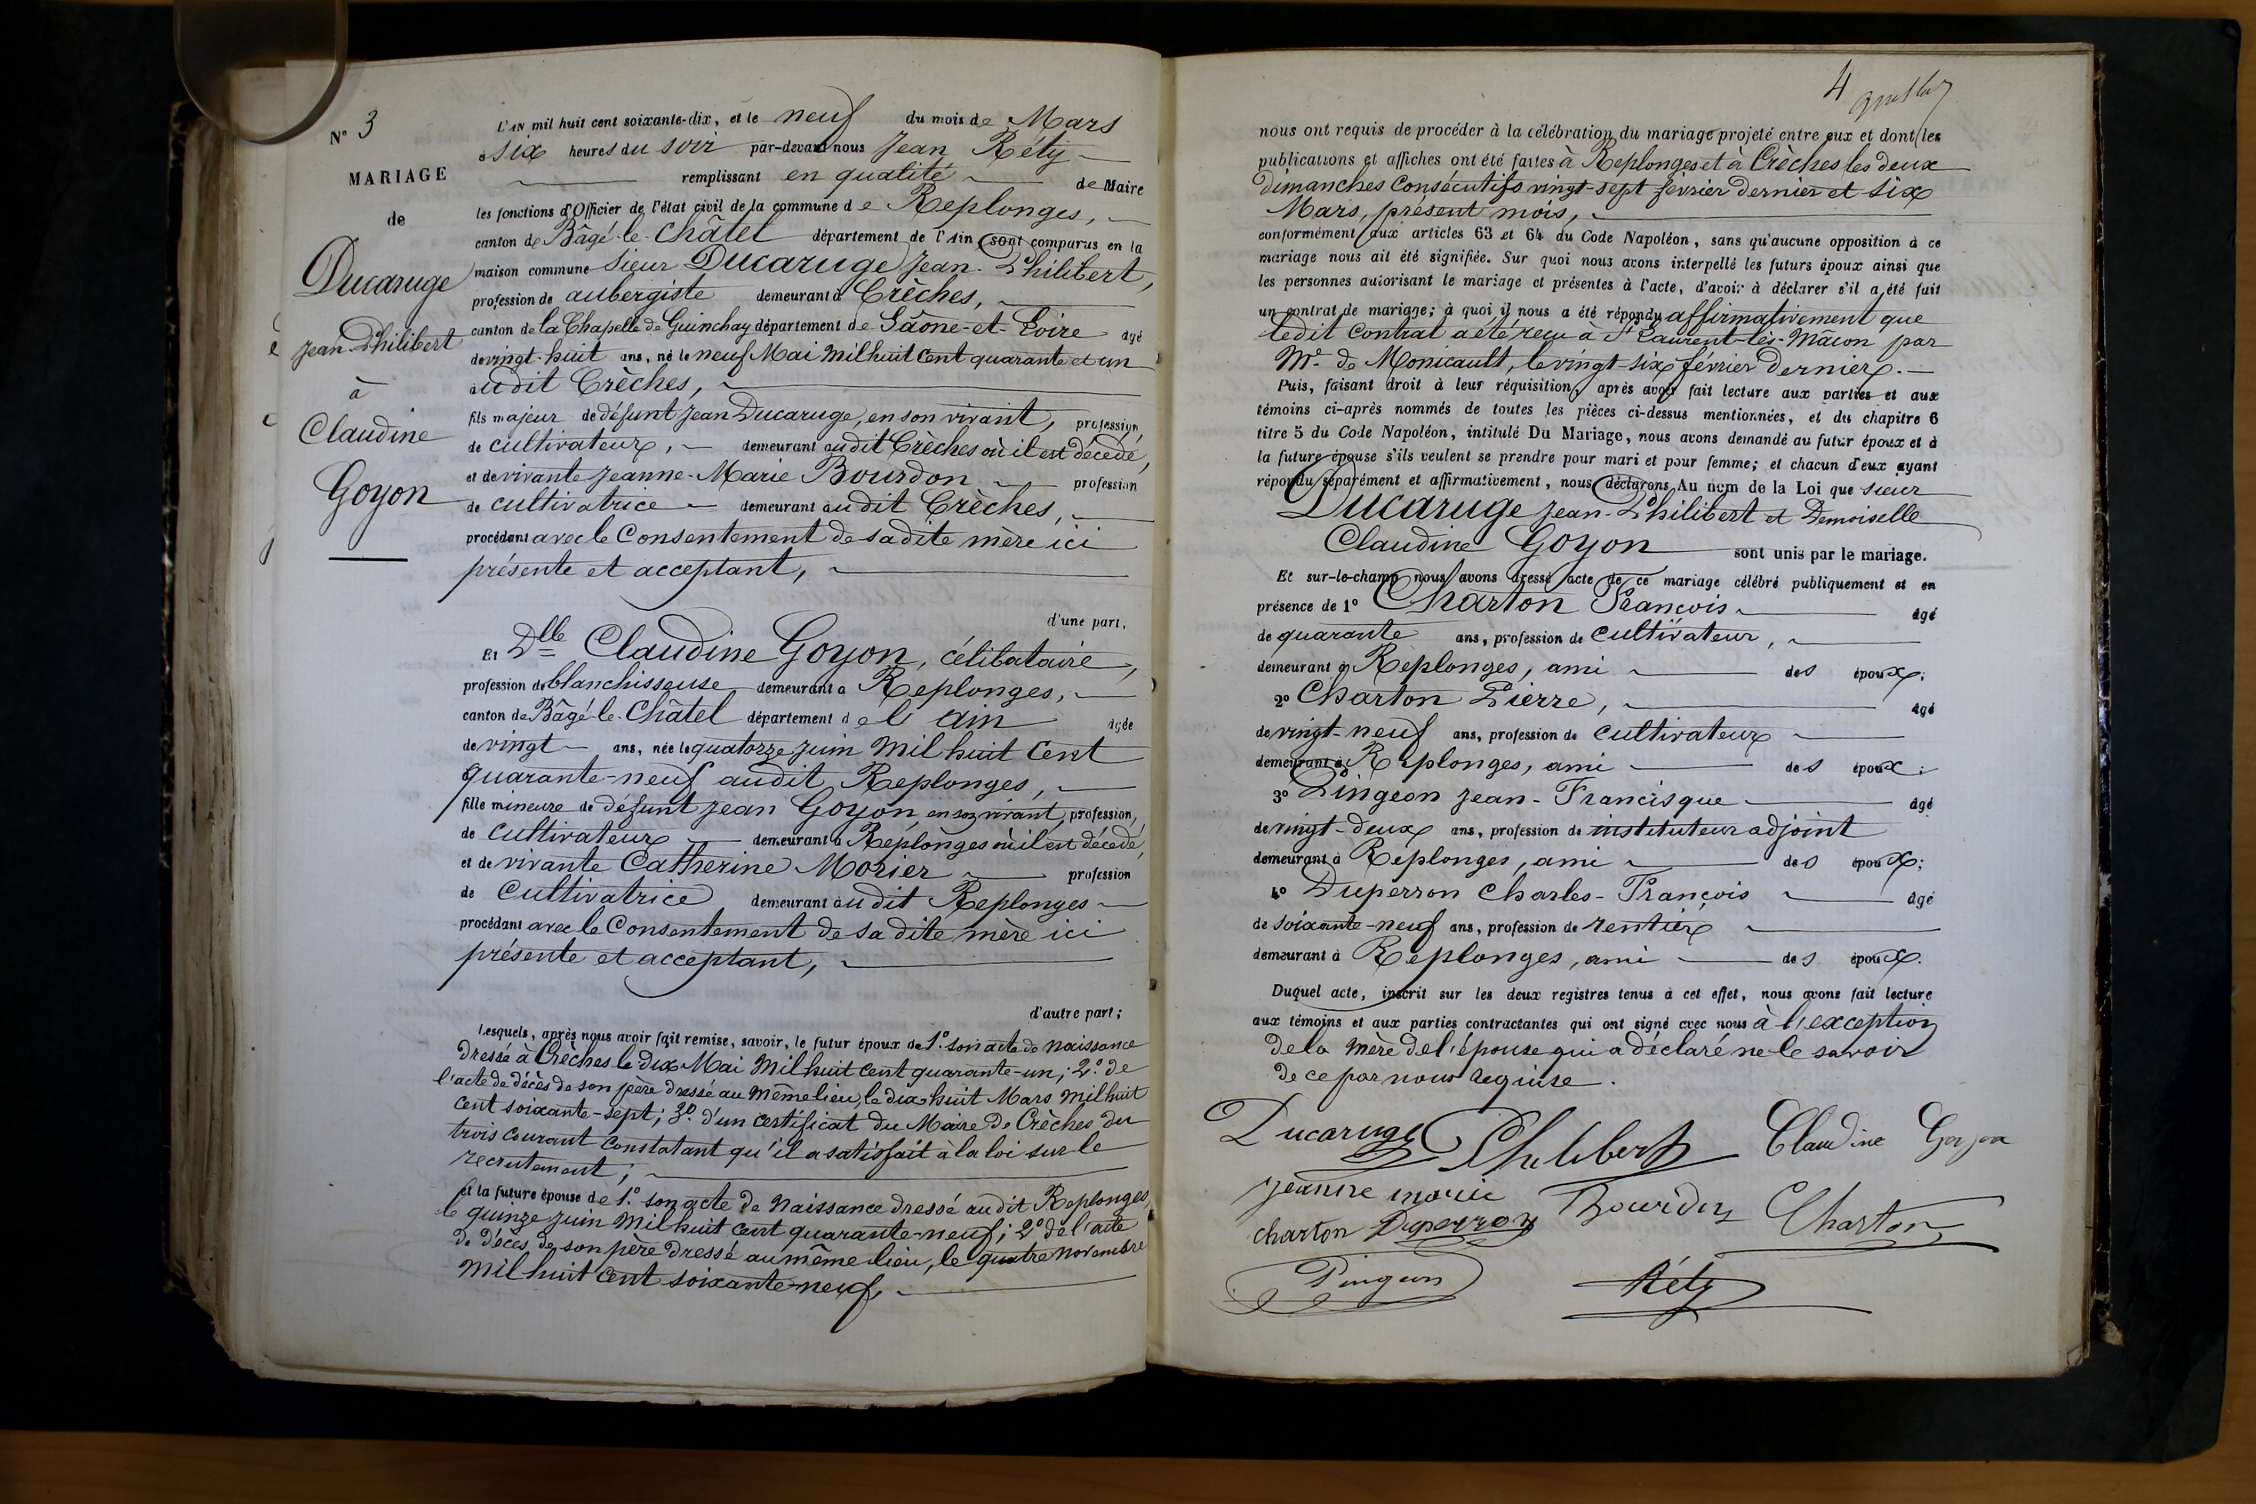 N° 3
MARIAGE
de
Ducaruge
Jean-Philibert
à
Claudine
Goyon
L'AN mil huit cent soixante-dix, et le neuf du mois de Mars
à six heures du soir par-devant nous Jean Réty
remplissant en qualité de Maire
les fonctions d'Officier de l'état civil de la commune de Replonges,
canton de Bâgé-le-Châtel département de l'Ain, sont comparus en la
maison commune Sieur Ducaruge Jean-Philibert,
profession de aubergiste demeurant à Crêches,
canton de la Chapelle de Guinchay département de Saône-et-Loire âgé
de vingt-huit ans, né le neuf Mai mil huit cent quarante et un
audit Crêches,
fils majeur de défunt Jean Ducaruge, en son vivant, profession
de cultivateur, demeurant audit Crêches où il est décédé,
et de vivante Jeanne-Marie Bourdon profession
de cultivatrice demeurant audit Crêches,
procédant avec le Consentement de sadite mère ici
présente et acceptant,
d'une part,
Et Dlle Claudine Goyon, célibataire,
profession de blanchisseuse demeurant à Replonges,
canton de Bâgé-le-Châtel département de l'Ain âgée
de vingt ans, née le quatorze juin Mil huit Cent
quarante-neuf audit Replonges,
fille mineure de défunt Jean Goyon, en son vivant, profession,
de cultivateur demeurant à Replonges où il est décédé,
et de vivante Catherine Morier profession
de Cultivatrice demeurant audit Replonges
procédant avec le Consentement de sa dite mère ici
présente et acceptant,
d'autre part;
Lesquels, après nous avoir fait remise, savoir, le futur époux de 1° son acte de Naissance
dressé à Crêches le dix Mai Mil huit cent quarante-un; 2° de
l'acte de décès de son père dressé au même lieu, le dix huit Mars mil huit
cent soixante-sept; 3° d'un certificat du Maire de Crêches du
trois courant constatant qu'il a satisfait à la loi sur le
recrutement;
et la future épouse de 1° son acte de Naissance dressé audit Replonges,
le quinze juin Mil huit cent quarante-neuf; 2° de l'acte
de décès de son père dressé au même lieu, le quatre Novembre
mil huit cent soixante-neuf,
4
nous ont requis de procéder à la célébration du mariage projeté entre eux et dont les
publications et affiches ont été faites à Replonges et à Crêches les deux
dimanches Consécutifs vingt-sept février dernier et six
Mars, présent mois,
conformément aux articles 63 et 64 du Code Napoléon, sans qu'aucune opposition à ce
mariage nous ait été signifiée. Sur quoi nous avons interpellé les futurs époux ainsi que
les personnes autorisant le mariage et présentes à l'acte, d'avoir à déclarer s'il a été fait
un contrat de mariage; à quoi il nous a été répondu affirmativement que
ledit Contrat a été reçu à St Laurent-lès-Mâcon par
Me de Monicault, le vingt-six février dernier.
Puis, faisant droit à leur réquisition, après avoir fait lecture aux parties et aux
témoins ci-après nommés de toutes les pièces ci-dessus mentionnées, et du chapitre 6
titre 5 du Code Napoléon, intitulé Du Mariage, nous avons demandé au futur époux et à
la future épouse s'ils veulent se prendre pour mari et pour femme; et chacun d'eux ayant
répondu séparément et affirmativement, nous déclarons Au nom de la Loi que sieur
Ducaruge Jean-Philibert et Demoiselle
Claudine Goyon sont unis par le mariage.
Et sur-le-champ nous avons dressé acte de ce mariage célébré publiquement et en
présence de 1° Charton François âgé
de quarante ans, profession de Cultivateur,
demeurant à Replonges, ami des époux;
2° Charton Pierre, âgé
de vingt-neuf ans, profession de cultivateur
demeurant à Replonges, ami des époux;
3° Pingeon Jean-Francisque âgé
de vingt-deux ans, profession de instituteur adjoint
demeurant à Replonges, ami des époux;
4° Duperron Charles-François âgé
de soixante-neuf ans, profession de rentier
demeurant à Replonges, ami des époux.
Duquel acte, inscrit sur les deux registres tenus à cet effet, nous avons fait lecture
aux témoins et aux parties contractantes qui ont signé avec nous à l'exception
de la mère de l'épouse qui a déclaré ne le savoir
de ce par nous requise.
Ducaruge Philibert Claudine Goyon
jeanne marie Bourdon Charton
charton Duperron
Pingeon Réty